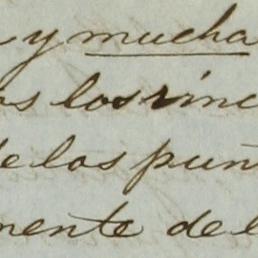 y mucha
os los rinc
de los puñ
mente del